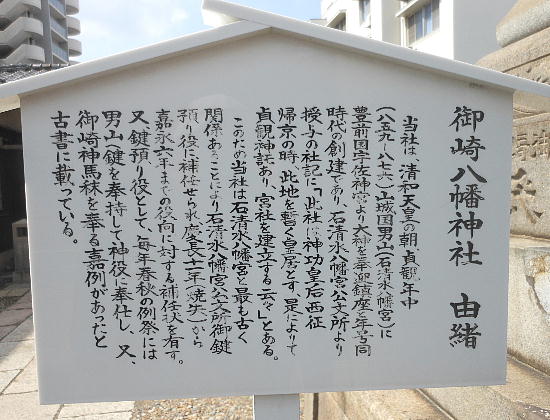 御崎八幡神社　由緒
当社は、清和天皇の朝貞観年中
(八五九〜八七六)山城国男山(石清水八幡宮)に
豊前国宇佐神宮より大神を奉迎鎮座と年号同
時代の創建であり、石清水八幡宮公文所より
授与の社記に「此社は神功皇后西征
帰京の時、此地を暫く皇居とす、是によりて
貞観神託あり、宮社を建立する云々」とある。
このため当社は石清水八幡宮と最も古く
関係あることにより石清水八幡宮公文所御鍵
預り役に補任せられ慶長十一年(焼失)から
嘉永六年までの役向に対する補任状を有す。
又、鍵預り役として、毎年春秋の例祭には
男山へ鍵を奉持して神役に奉仕し、又、
御崎神馬秣を奉る嘉例があったと
古書に載っている。